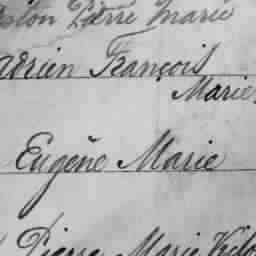 Pierre Marie
Adrien François
Marie
Eugène Marie
Pierre Marie